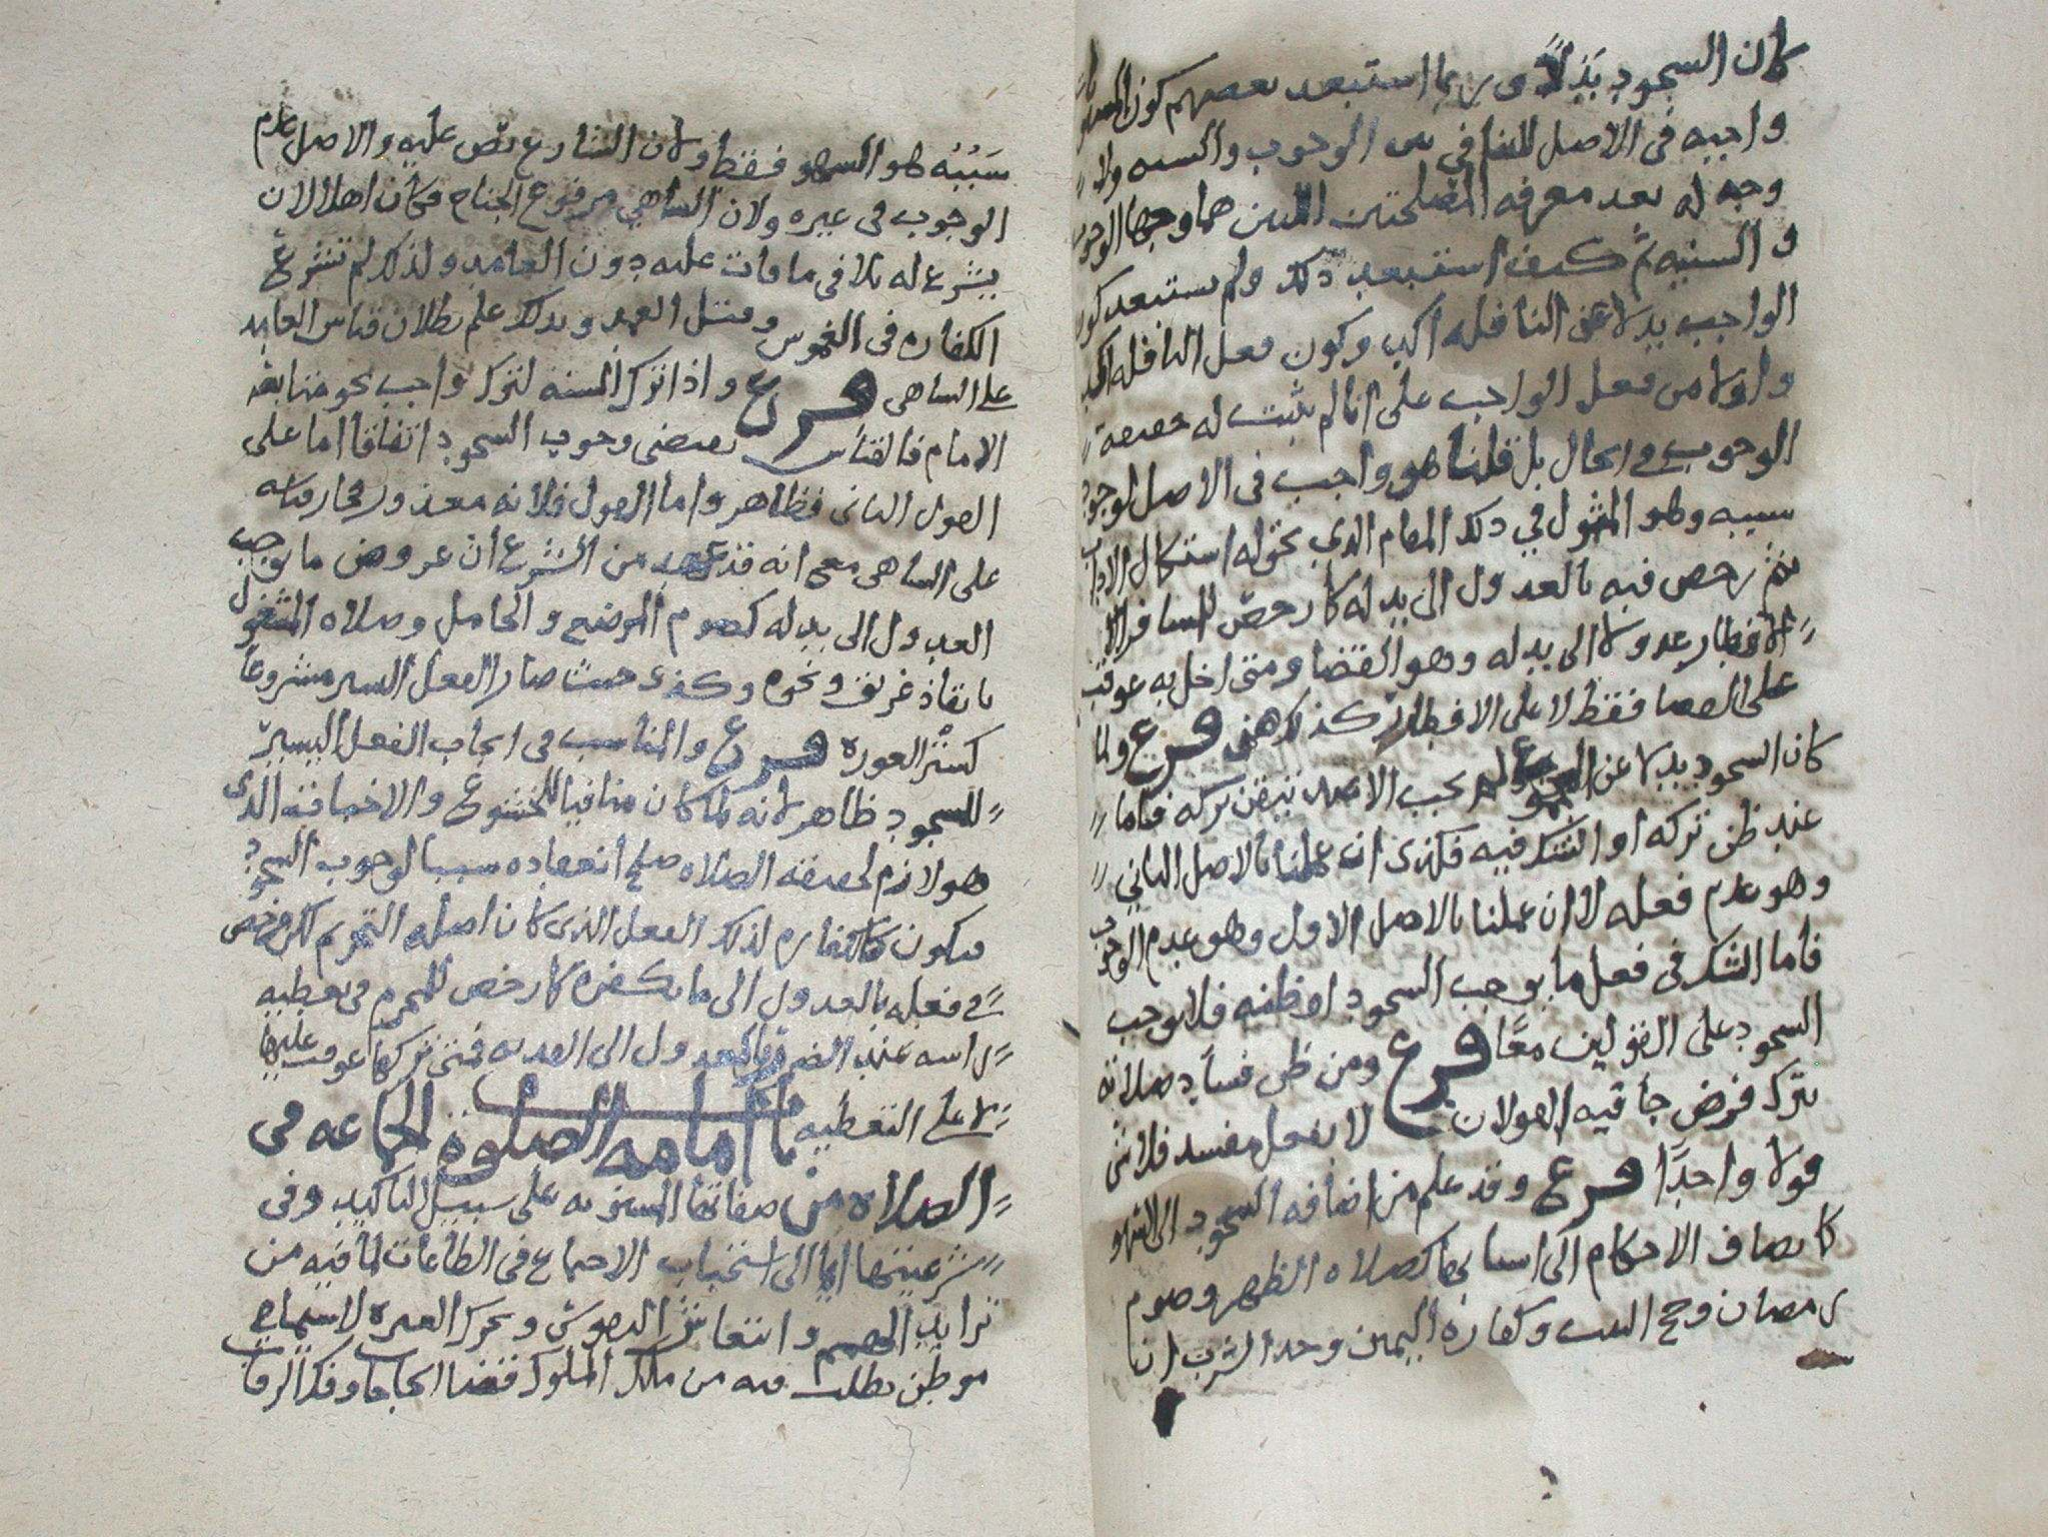 كان السجود بَدَلاً و ربما استبعد بعضهم كون
واجبه في الاصل للتنافي بين الوجوب والسنه ولا
وجه له بعد معرفه المصلحتين اللتين هما وجها الوجوب
والسنيه ثم كيف استبعد ذلك ولم يستبعد كون
الواجب بدلا عن النافله اكبر وكون فعل النافله
واولا من فعل الواجب على انا لم نثبت له حقيقة
الوجوب في الحال بل قلنا هو واجب في الاصل لوجود
سببه وهو المثول في ذلك المقام الذي يحق له استكمال الاداب
ثم رخص فيه بالعدول الى بدله كما رخص للمسافر
الافطار عدولا الى بدله وهو القضا ومتى اخل به عوقب
على القضا فقط لا على الافطار كذلك هنى فرع ولما
كان السجود بدلا عن لم يجب الا عند تيقن تركه فاما
عند ظن تركه او الشك فيه فكذى ان عملنا بالاصل الثاني
وهو عدم فعله لا ان عملنا بالاصل الاول وهو عدم الوجوب
فاما الشك في فعل ما يوجب السجود او ظنه فلا يوجب
السجود على القولين معًا فرع ومن ظن فساد صلاته
بترك فرض جا فيه القولان لا بفعل مفسد فلا شي
قولا واحدًا فرع وقد علم من اضافه السجود الى السهو
كما تضاف الاحكام الى اسبابها كصلاه الظهر وصوم
رمضان وحج البيت وكفارة اليمين وحد الشرب ان
سَبَبُه هو السهو فقط ولان الشارع نصّ عليه والاصل عدم
الوجوب في غيره ولان الساهي مرفوع الجناح فكان اهلا لان
يشرع له تلافي ما فات عليه دون العامد ولذلك لم تشرع
الكفاره في الغموس وقتل العمد وبذلك علم بطلان قياس العامد
على الساهى فرع واذا ترك السنه لترك واجب نحو متابعه
الامام فالقياس يقتضي وجوب السجود اتفاقا اما على
القول الثاني فظاهر واما الاول فلانه معذور فجاز قياسه
على الساهى مع انه قد عهد من الشرع ان عروض ما يوجب
العدول الى بدله كصوم المرضع والحامل وصلاه المشغول
بانقاذ غريق ونحوه وكذى حيث صار الفعل اليسير مشروعا
كستر العورة فرع والمناسب في ايجاب الفعل اليسير
للسجود ظاهر لانه لما كان منافيا للخشوع والاخبات الذى
هو لازم لحقيقه الصلاه صلح انعقاده سببا لوجوب السجود
فيكون كالكفاره لذلك الفعل الذى كان اصله التحريم لكن رخص
في فعله بالعدول الى ما يكفره كما رخص للمحرم في تغطيه
راسه عند الضروره بالعدول الى الفديه فمتى تركها عوقب عليها
لا على التغطيه باب امامه الصلوة الجماعه في
الصلاه من صفاتها المسنونه على سبيل التاكيد وفى
شرعيتها ايما الى استحباب الاجتماع في الطاعات لما فيه من
تزايد الهمم وانتعاش النفوس وتحرك الغيره لا سيما في
موطن يطلب فيه من مالك الملوك قضا الحاجات وفك الرقاب